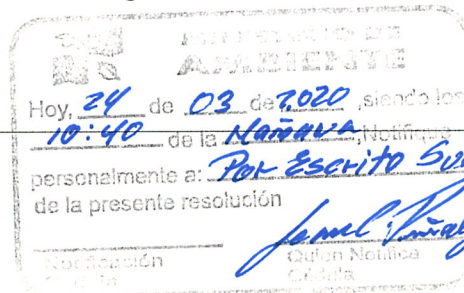 MINISTERIO DE
AMBIENTE
Hoy, 24 de 03 de 2.020, siendo los
10:40 de la Mañana, Notifique
personalmente a: Por Escrito
de la presente resolución
Notificación
Quien Notifica
Cédula